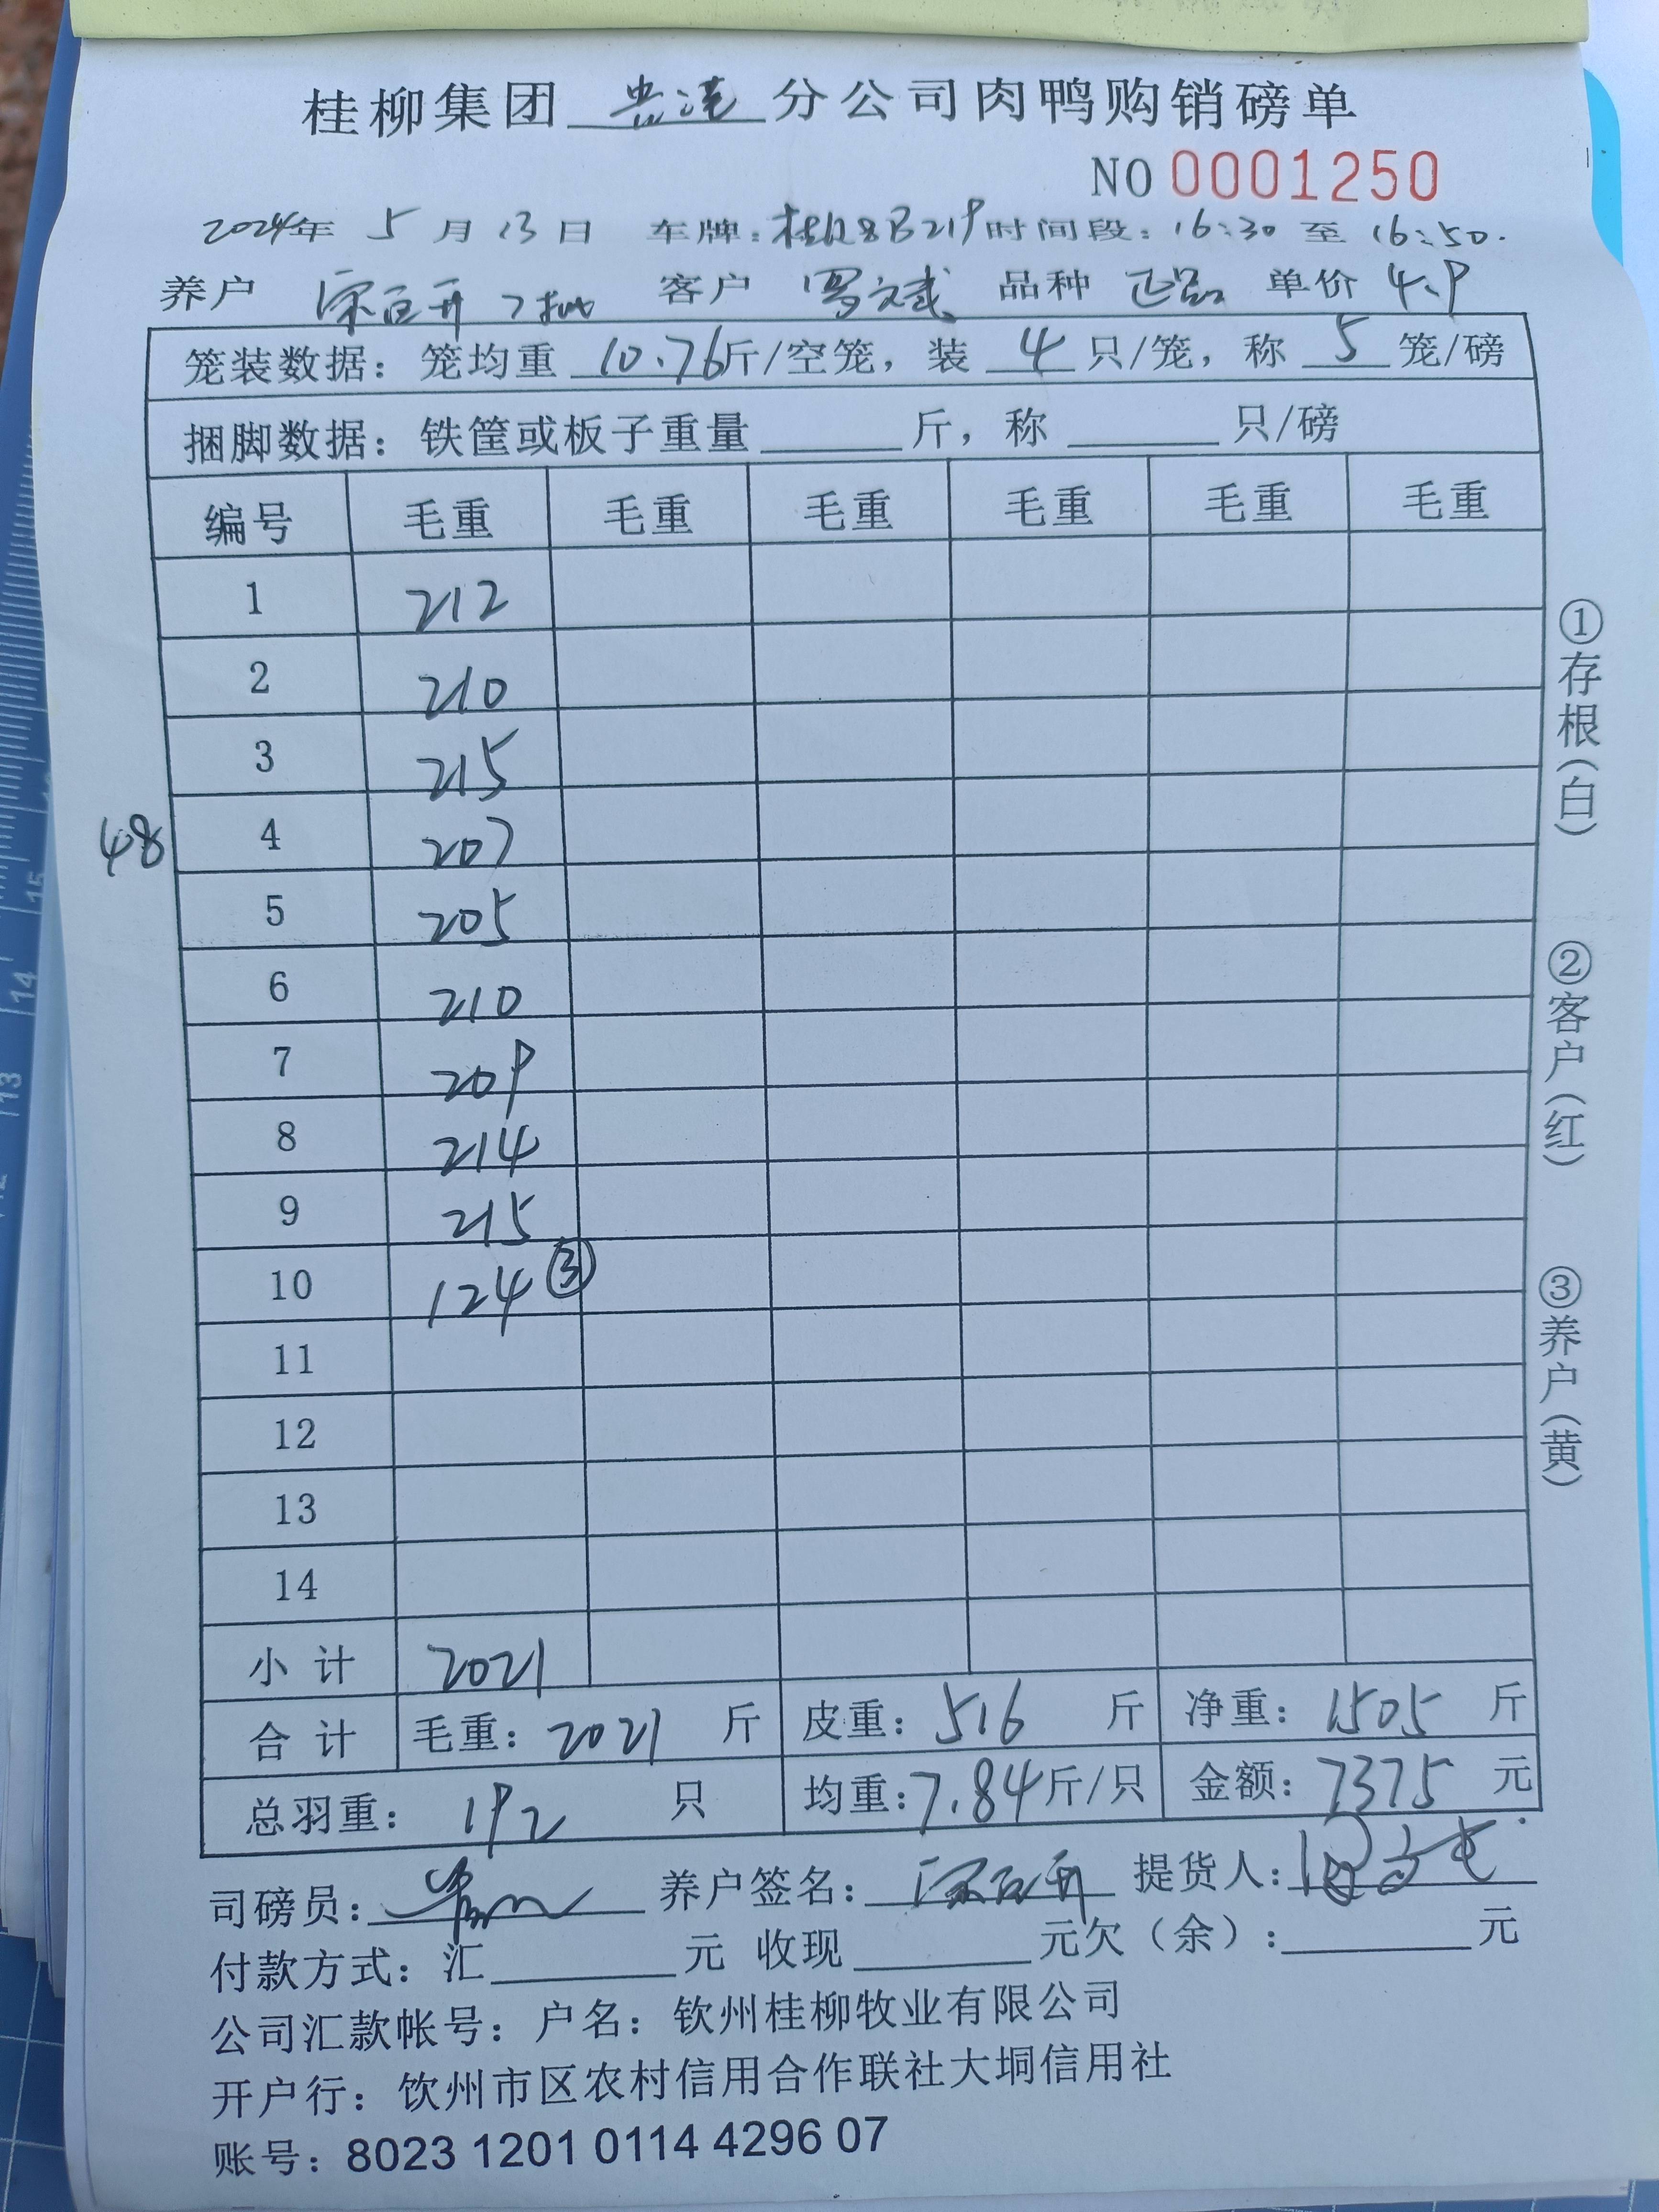 桂柳集团 分公司肉鸭购销磅单
NO 0001250
2024年 5月 13日 车牌: 8B219 时间段: 16:30 至 16:50.
养户 客户 罗文武 品种 正品 单价 4.9
笼装数据: 笼均重 10.76斤/空笼, 装 4 只/笼, 称 5 笼/磅
捆脚数据: 铁筐或板子重量 斤, 称 只/磅
编号 毛重 毛重 毛重 毛重 毛重 毛重
1 212
2 210
3 215
48 4 207
5 205
6 210
7 209
8 214
9 215
10 124 ③
11
12
13
14
小计 2021
合计 毛重: 2021 斤 皮重: 516 斤 净重: 1505 斤
总羽重: 192 只 均重: 7.84斤/只 金额: 7375 元
司磅员: 养户签名: 提货人:
付款方式: 汇 元 收现 元欠(余): 元
公司汇款帐号: 户名: 钦州桂柳牧业有限公司
开户行: 钦州市区农村信用合作联社大垌信用社
账号: 8023 1201 0114 4296 07
①存根(白)
②客户(红)
③养户(黄)
15
14
13